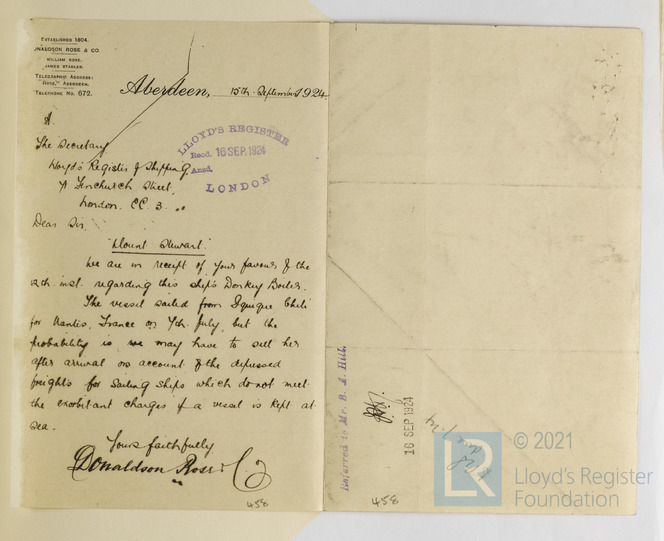 ESTABLISHED 1804.
ONALDSON ROSE & CO
WILLIAM ROSE.
JAMES STABLES.
TELEGRAPHIC ADDRESS:
"ROSE," ABERDEEN.
TELEPHONE No. 672.
Aberdeen, 15th September 1924
The Secretary
Lloyd's Register of Shipping
71 Fenchurch Street,
London. EC. 3.
LLOYD'S REGISTER
Recd. 16 SEP. 1924
Ansd.
LONDON
Dear Sir,
"Mount Stewart."
We are in receipt of your favour of the
12th inst. regarding this ship's Donkey Boiler.
The vessel sailed from Iquique Chili
for Nantes, France on 7th July, but the
probability is we may have to sell her
after arrival on account of the depressed
freights for sailing ships which do not meet
the exorbitant charges if a vessel is kept at
sea.
Yours faithfully
Donaldson Rose & Co
458
Referred to Mr. B. A. Hill.
16 SEP 1924
458
© 2021
LR
Lloyd's Register
Foundation